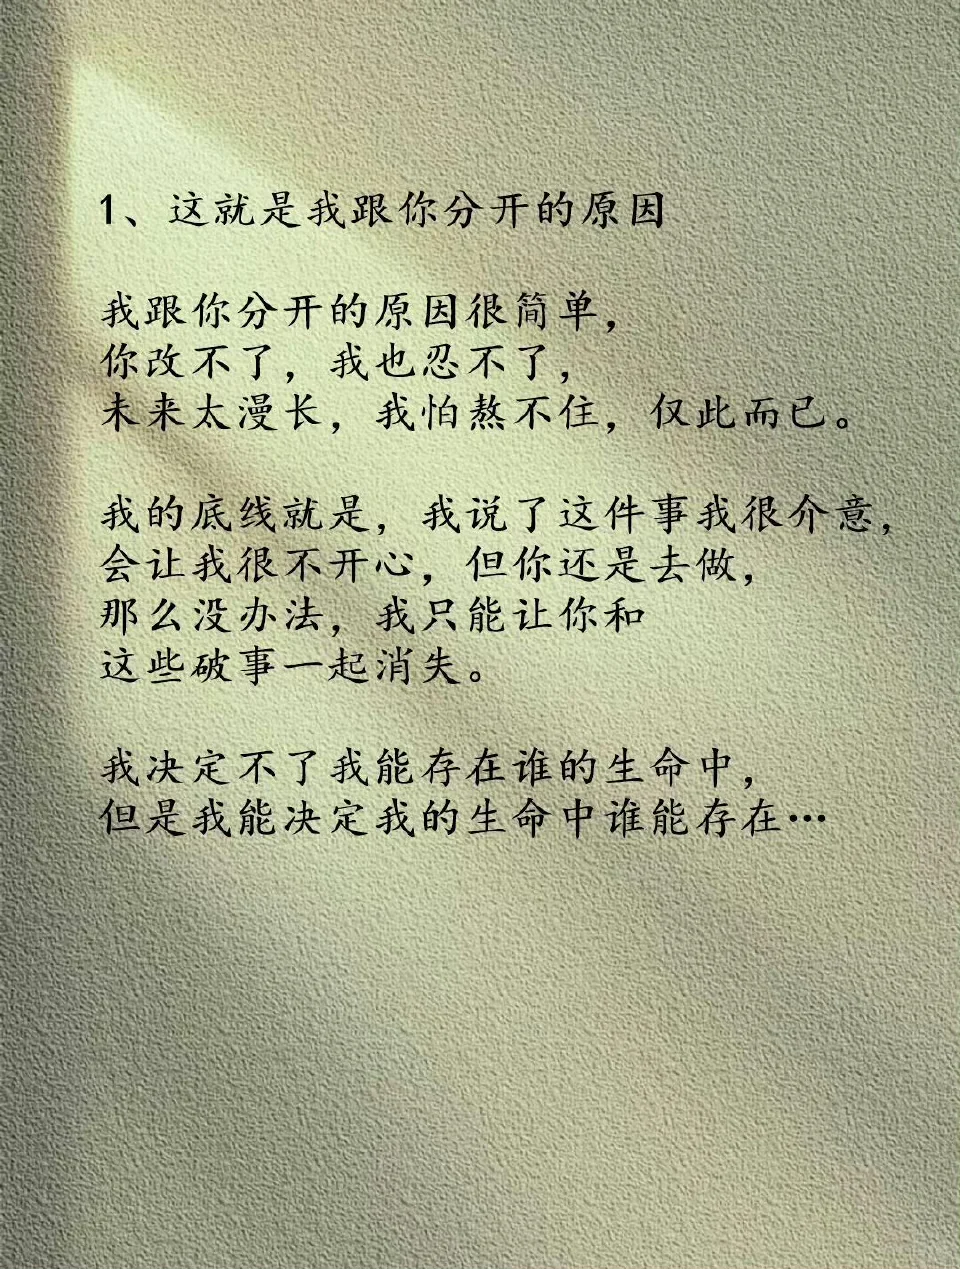 1、这就是我跟你分开的原因
我跟你分开的原因很简单，
你改不了，我也忍不了，
未来太漫长，我怕熬不住，仅此而已。
我的底线就是，我说了这件事我很介意，
会让我很不开心，但你还是去做，
那么没办法，我只能让你和
这些破事一起消失。
我决定不了我能存在谁的生命中，
但是我能决定我的生命中谁能存在…